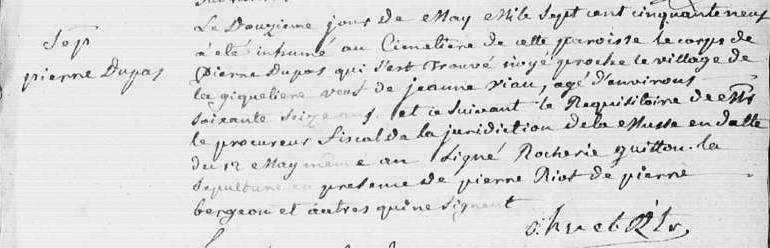 Sep
pierre Dupas
Le Douzieme jour de May Mile Sept cent cinquante neuf
a été inhumé au Cimetiere de cette paroisse le corps de
pierre Dupas qui s'est Trouvé noyé proche le village de
la giqueliere veuf de jeanne viau, agé d'environs
soixante seize ans. et ce suivant le Requisitoire de Mr
le procureur fiscal de la juridiction de la Musse en datte
du 12 May même an Signé Rocherie guitton. la
sepulture en presence de pierre Riot de pierre
bergeon et autres qui ne signent